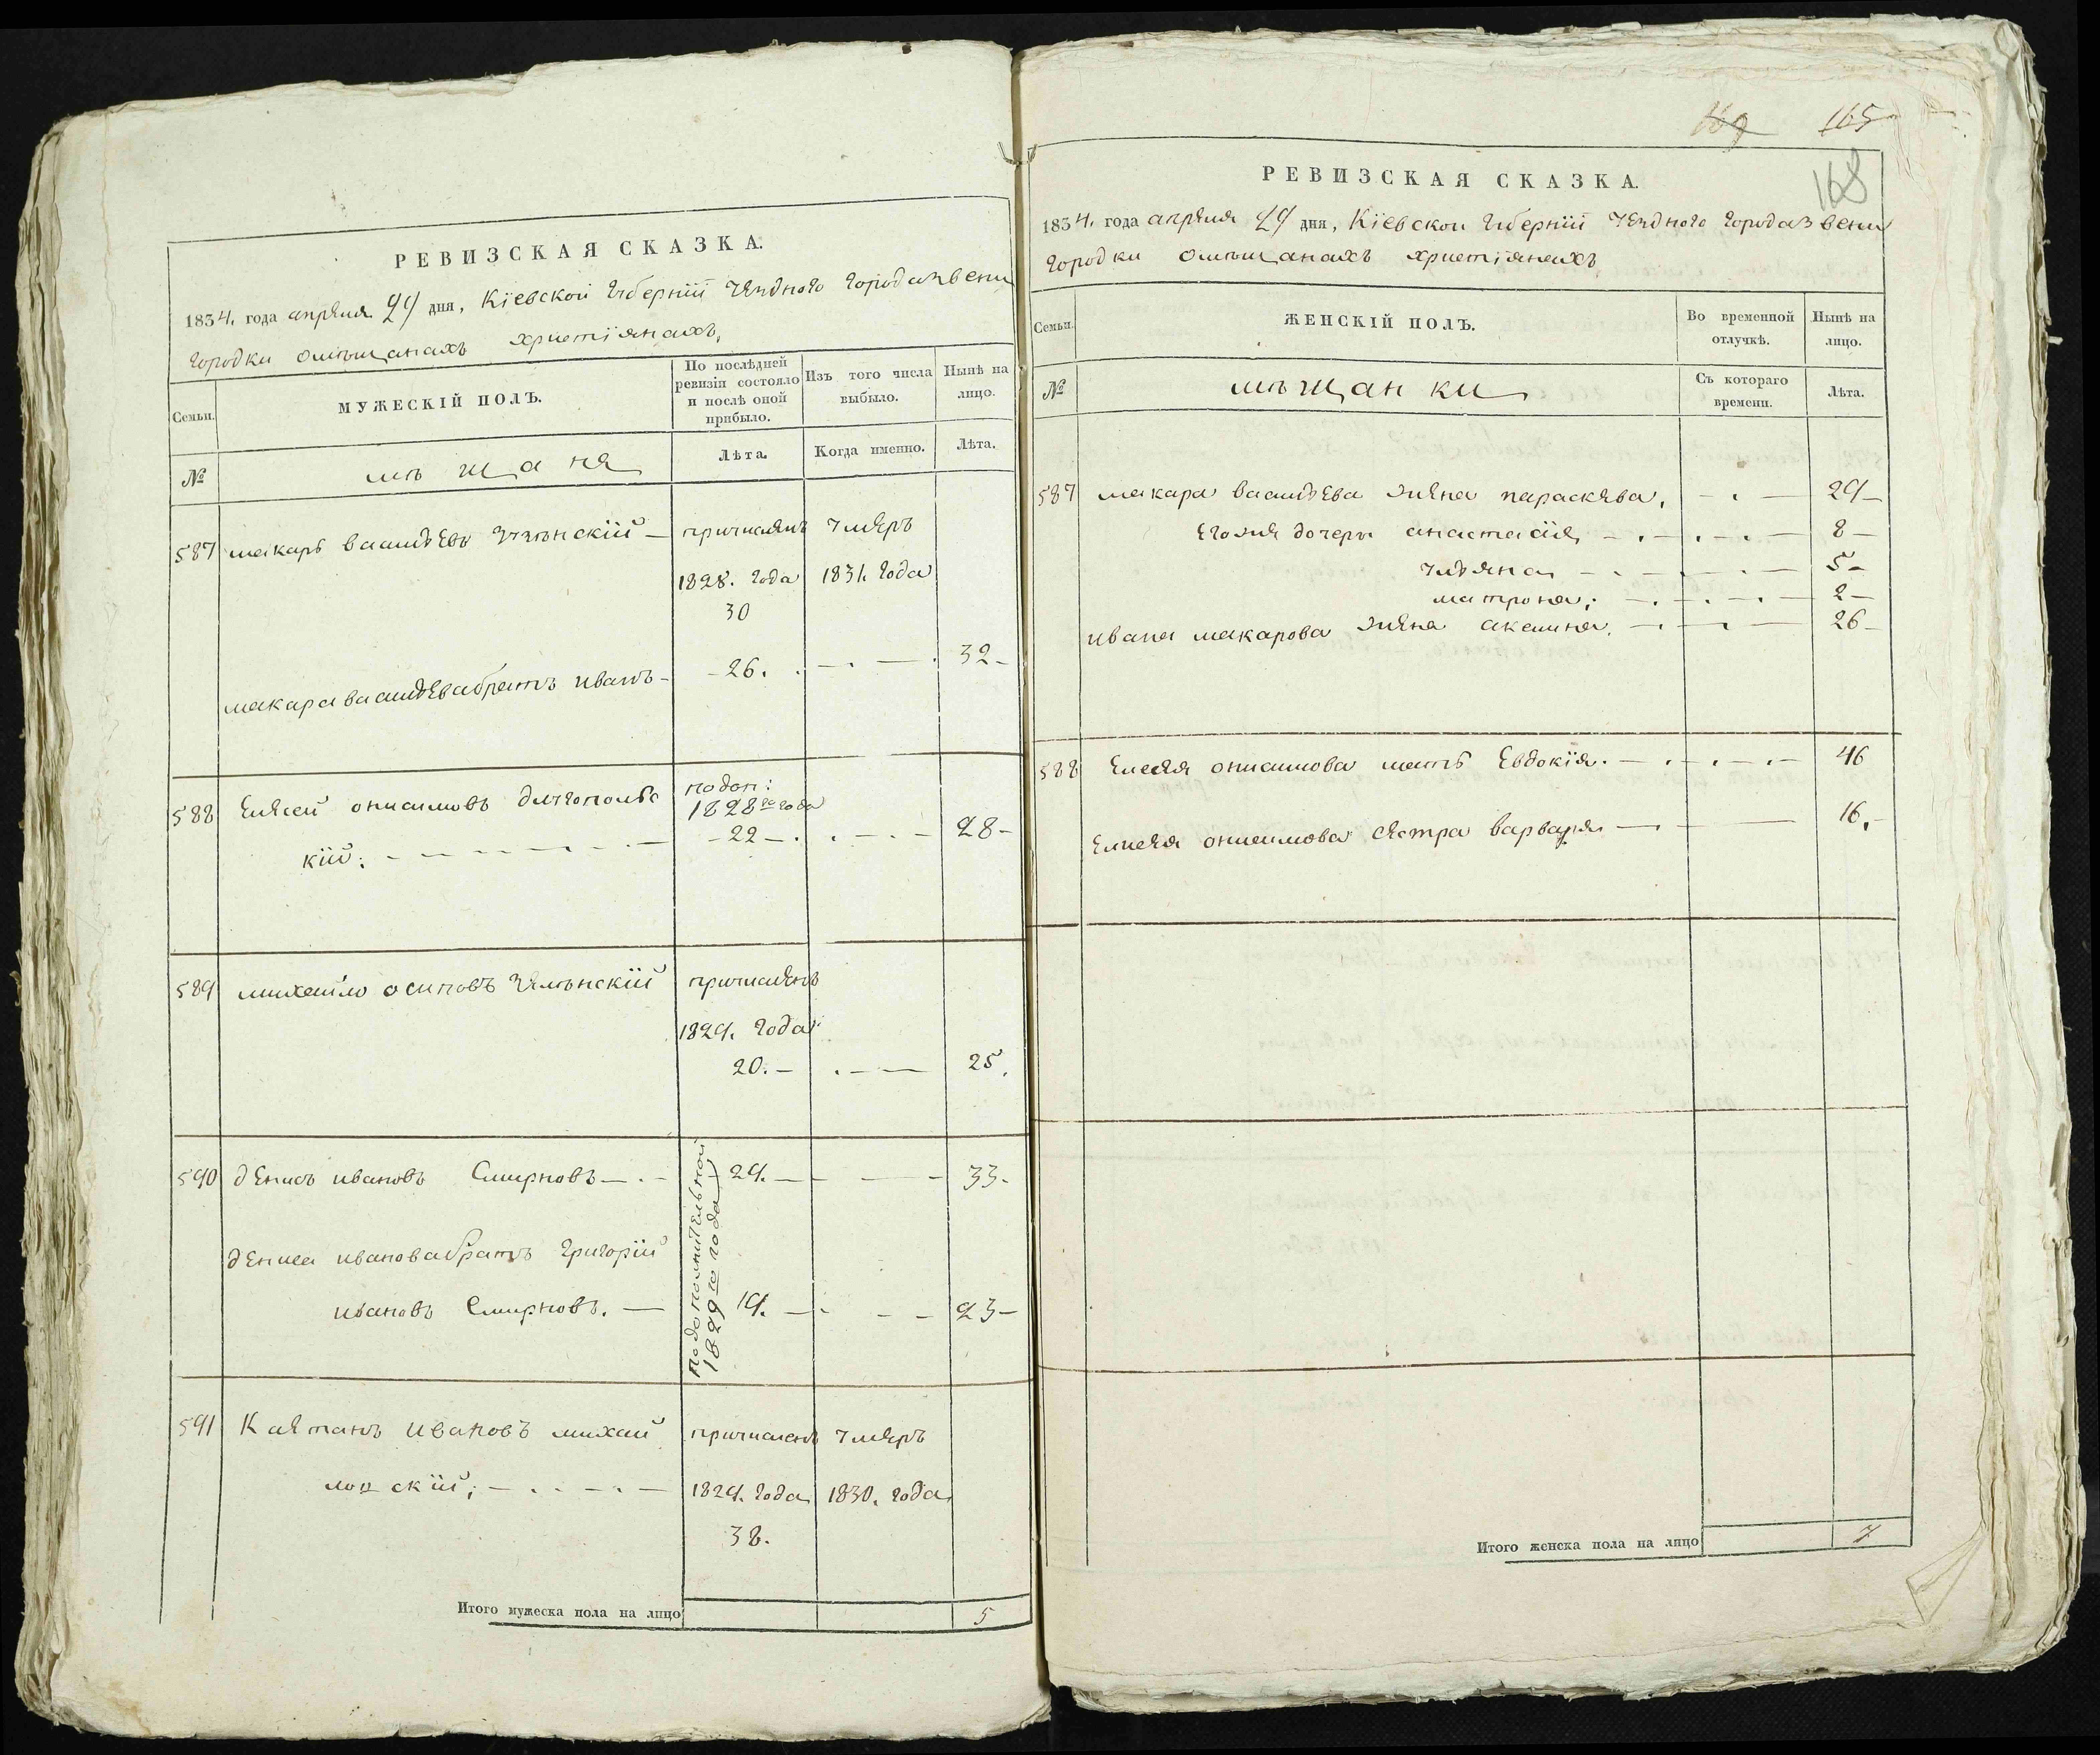 РЕВИЗСКАЯ СКАЗКА.
1834. года апреля 29 дня, Кіевской губерніи уезднаго города Звени
городки о мѣщанахъ христіянахъ,
Семьи.
МУЖЕСКІЙ ПОЛЪ.
По послѣдней ревизіи состояло и послѣ оной прибыло.
Изъ того числа выбыло.
Нынѣ на лицо.
№
мѣщаня
Лѣта.
Когда именно.
Лѣта.
587 макаръ васильевъ — причисленъ умеръ
1828. года 1831. года
30
макара васильева братъ иванъ - - 26. . — . — . 32 -
588 Елисей онисимовъ подоп:
1828го года
кій: - 22 - . . — . — 28 -
589 михайло осиповъ причисленъ
1829. года
20. - . — — 25.
590 денисъ ивановъ Смирновъ — . - 29. — - — - 33 -
По дополнительной
1829го года
дениса иванова братъ григорій
ивановъ Смирновъ. — 19. — - — - 23 -
591 Каетанъ Ивановъ михай причисленъ умеръ
ловскій; - . . — . — 1829. года 1830. года
38.
Итого мужеска пола на лицо 5
169 165
168
РЕВИЗСКАЯ СКАЗКА.
1834. года апреля 29 дня, Кіевской губерніи уезднаго города Звени
городки о мѣщанахъ христіянахъ
Семьи.
ЖЕНСКІЙ ПОЛЪ.
Во временной отлучкѣ.
Нынѣ на лицо.
№
мѣщанки
Съ котораго времени.
Лѣта.
587 макара васильева жена параскева, - . — 29 -
его же дочери анастасія — . — . — . — 8 -
ульяна — . — . — 5 -
матрона; — . — . — . — 2 -
ивана макарова жена акилина. — . — . — 26 -
588 Елисея онисимова мать Евдокія. — . — . — . — 46
Елисея онисимова сестра варвара — . — — 16. -
Итого женска пола на лицо 7